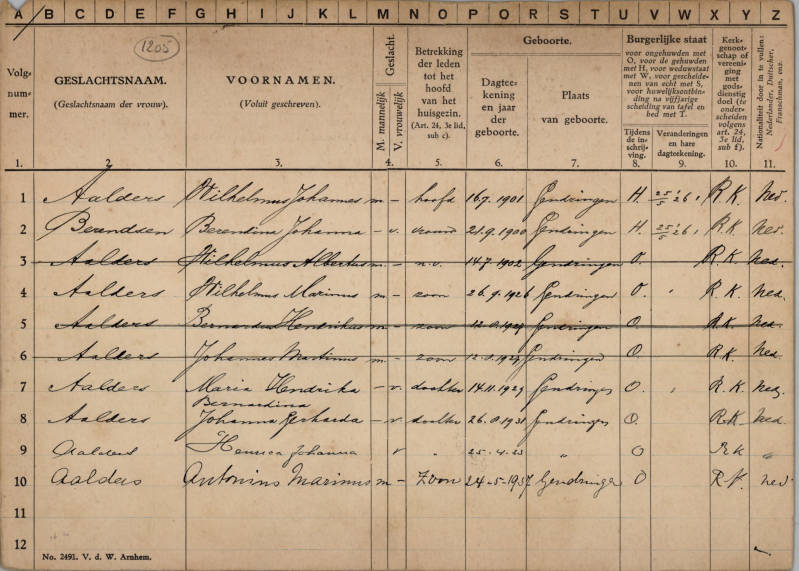 A B C D E F G H I J K L M N O P O R S T U V W X Y Z
1205
Volg-
num-
mer.
GESLACHTSNAAM.
(Geslachtsnaam der vrouw).
VOORNAMEN.
(Voluit geschreven).
Geslacht.
M. mannelijk
V. vrouwelijk
Betrekking
der leden
tot het
hoofd
van het
huisgezin.
(Art. 24, 3e lid,
sub c).
Geboorte.
Dagtee-
kening
en jaar
der
geboorte.
Plaats
van geboorte.
Burgerlijke staat
voor ongehuwden met
O, voor de gehuwden
met H, voor weduwstaat
met W, voor gescheide-
nen van echt met S,
voor huwelijksontbin-
ding na vijfjarige
scheiding van tafel en
bed met T.
Tijdens
de in-
schrij-
ving.
Veranderingen
en hare
dagteekening.
Kerk-
genoot-
schap of
vereeni-
ging
met
gods-
dienstig
doel (te
onder-
scheiden
volgens
art. 24,
3e lid,
sub f).
Nationaliteit door in te vullen:
Nederlander, Duitscher,
Franschman, enz.
1. 2. 3. 4. 5. 6. 7. 8. 9. 10. 11.
1 Aalders Wilhelmus Johannes m – hoofd 16.7.1901 Gendringen H. 25/5 '26 R.K. Ned.
2 Berendsen Berendina Johanna – v. vrouw 21.9.1900 Gendringen H. 25/5 '26 R.K. Ned.
3 Aalders Wilhelmus Albertus m – n.v. 14.7.1902 Gendringen O. R.K. Ned.
4 Aalders Wilhelmus Marinus m – zoon 26.9.1926 Gendringen O. R.K. Ned.
5 Aalders Bernardus Hendrikus m – zoon Gendringen O. R.K. Ned.
6 Aalders Johannes Martinus m – zoon Gendringen O. R.K. Ned.
7 Aalders Maria Hendrika – v. dochter 14.11.1929 Gendringen O. R.K. Ned.
Bernardina
8 Aalders Johanna Gerharda – v dochter 26.8.1931 Gendringen O. R.K. Ned.
9 Aalders Henrica Johanna v „ 25.4.33 „ O RK „
10 Aalders Antonius Marinus m – Zoon 24-5-1937 Gendringen O R.K. Ned
11
12
No. 2491. V. d. W. Arnhem.